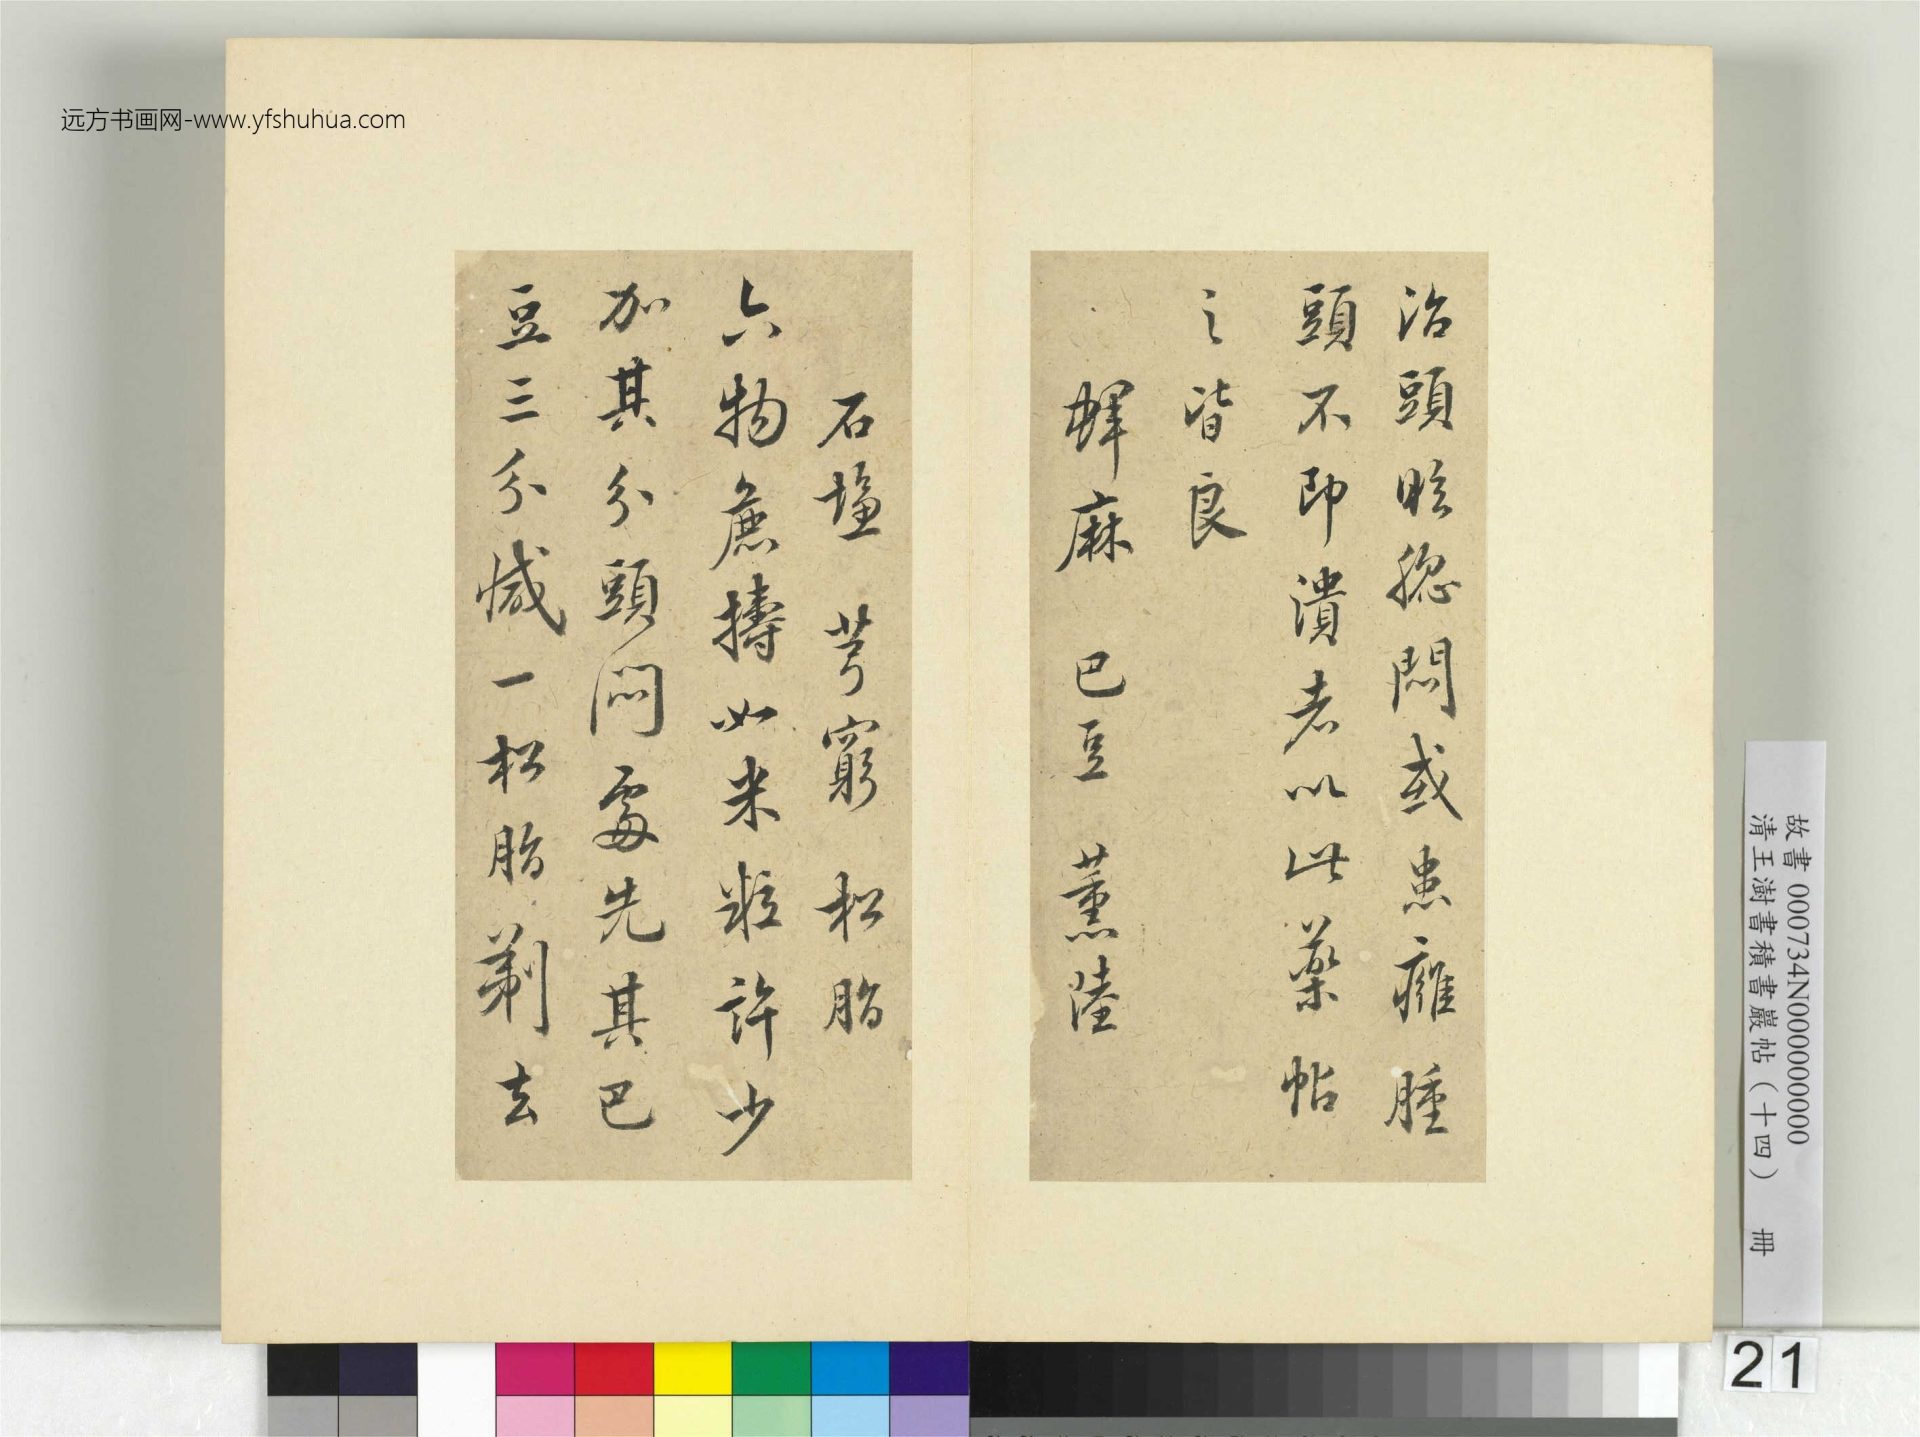 远方书画网-www.yfshuhua.com
治頭眩腦悶或患癰腫
頭不即潰者以此藥帖
之皆良
蜱麻 巴豆 薰陸
石塩 芎窮 松脂
六物麁擣如米粒許少
加其分頭悶處先其巴
豆三分減一松脂剃去
故書 000734N000000000
清王澍書積書巖帖(十四) 冊
21